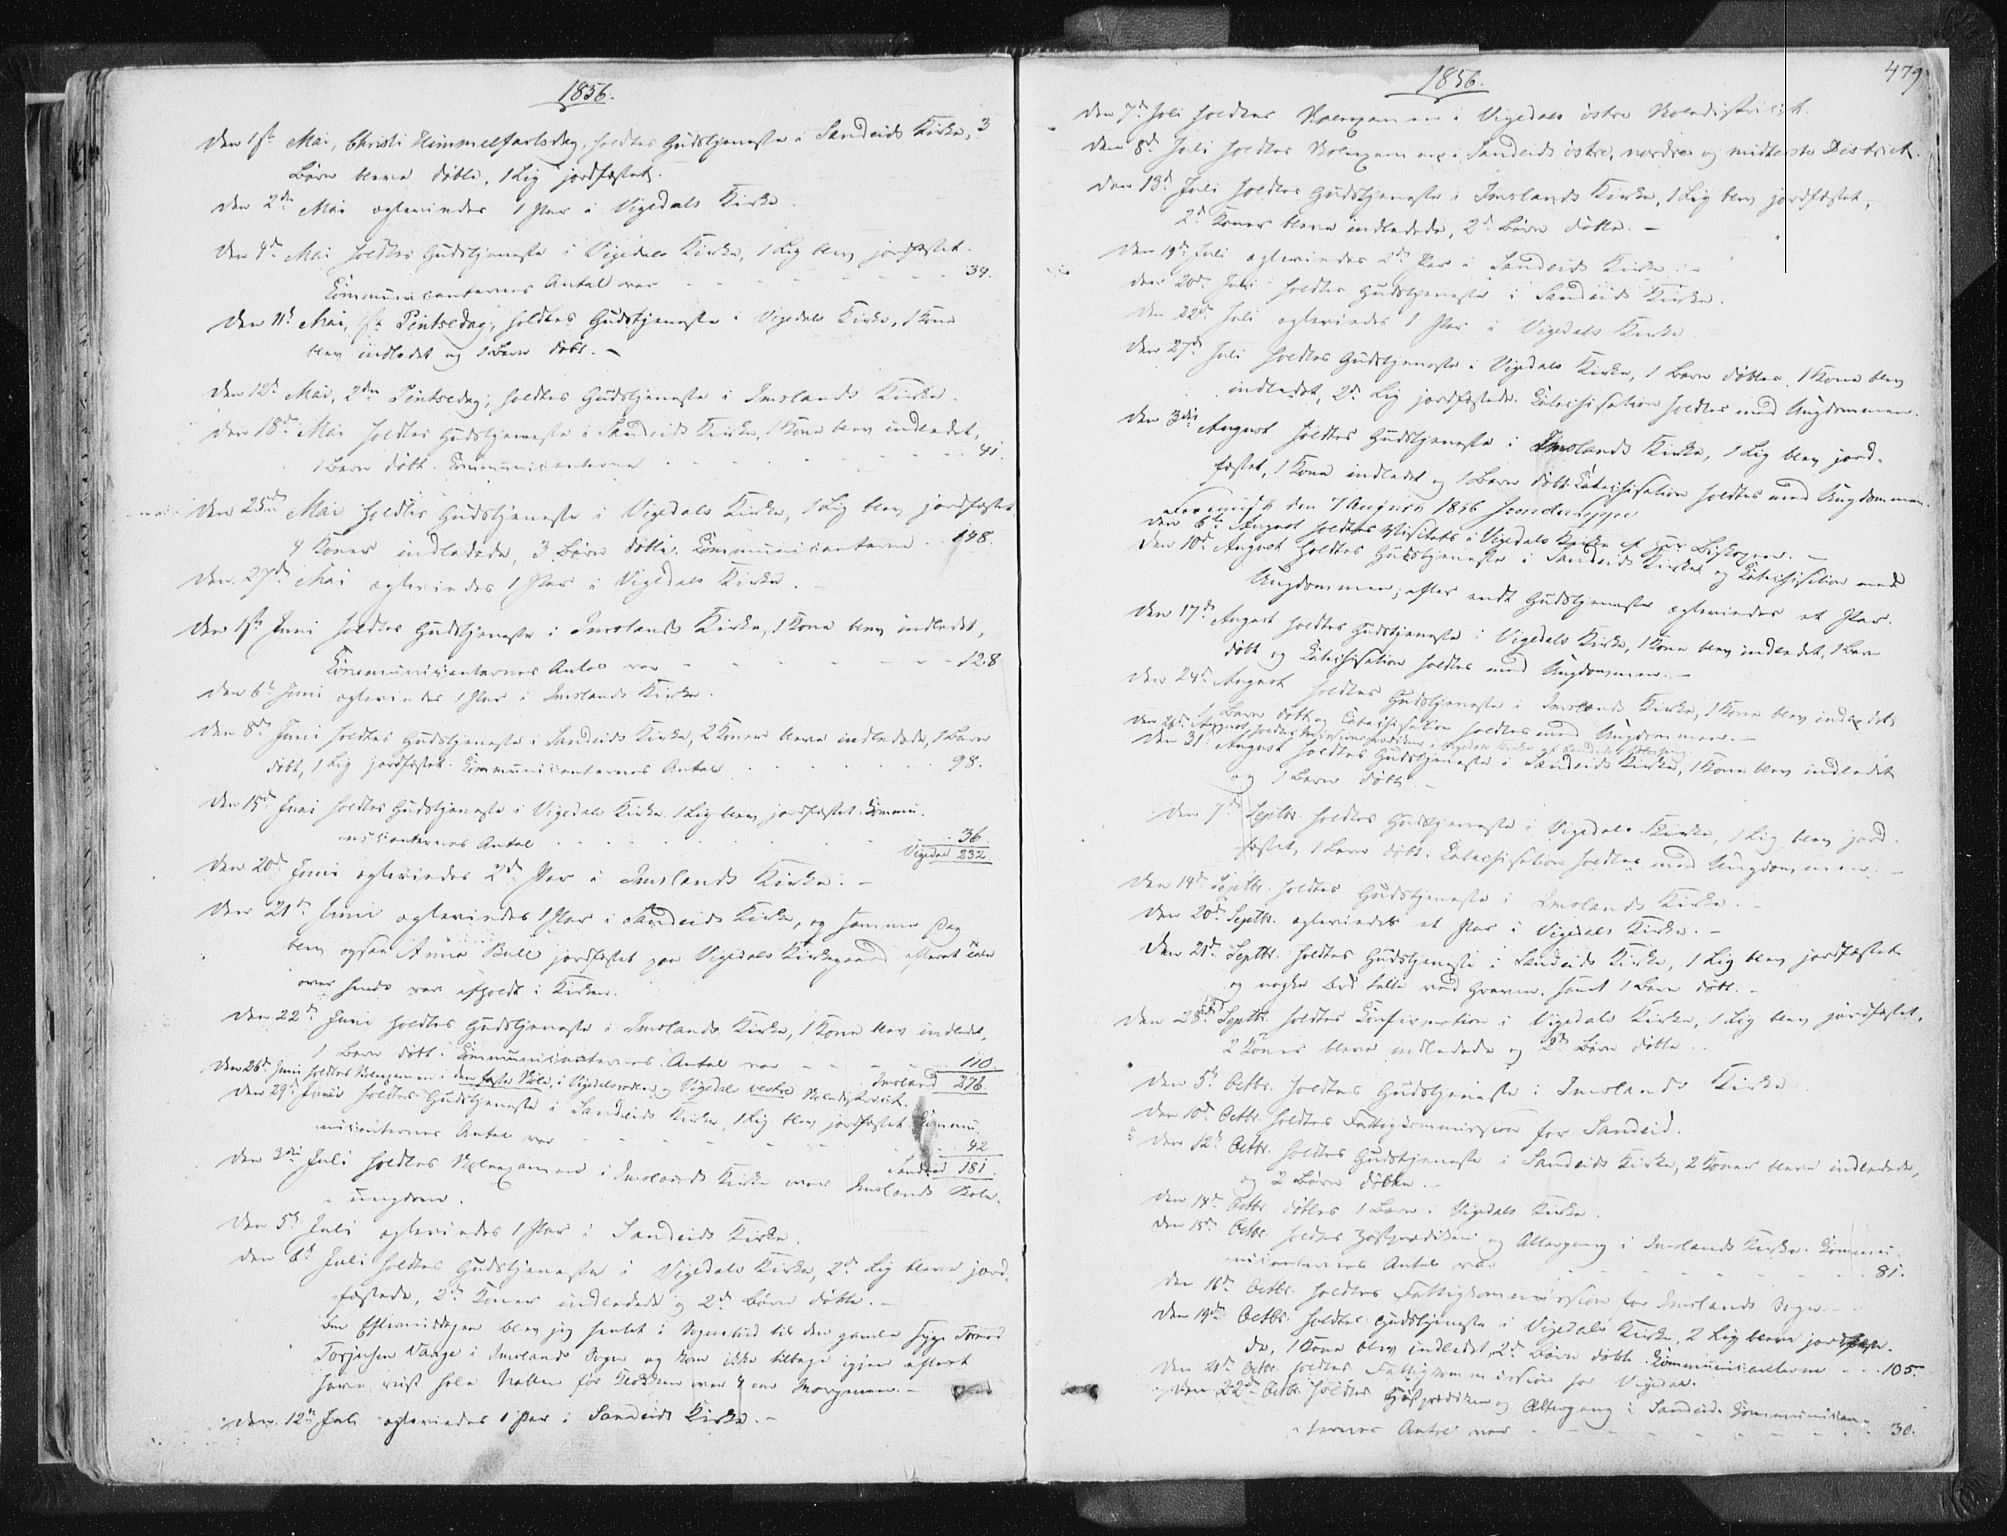 1856.
Den 1ste Mai, Christi Himmelfartsdag, holdtes Gudstjeneste i Sandeids Kirke, 3
Børn bleve døbte, 1 Lig jordfæstet.
Den 2den Mai ægteviedes 1 Par i Vigedals Kirke.
Den 4de Mai holdtes Gudstjeneste i Vigedals Kirke, 1 Lig blev jordfæstet.
Communicanternes Antal var - - - - - 34.
Den 11te Mai, 1ste Pintsedag, holdtes Gudstjeneste i Vigedals Kirke, 1 Kone
blev indledet og 1 Barn døbt. -
Den 12te Mai, 2den Pintsedag, holdtes Gudstjeneste i Imslands Kirke.
Den 18de Mai holdtes Gudstjeneste i Sandeids Kirke, 1 Kone blev indledet,
1 Barn døbt. Communicanterne - - - - - 41.
Den 25de Mai holdtes Gudstjeneste i Vigedals Kirke, 1 Lig blev jordfæstet
4 Koner indledede, 3 Børn døbte. Communicanterne - - 148.
Den 27de Mai ægteviedes 1 Par i Vigedals Kirke. -
Den 1ste Juni holdtes Gudstjeneste i Imslands Kirke, 1 Kone blev indledet,
Communicanternes Antal var - - - - - 128
Den 6te Juni ægteviedes 1 Par i Imslands Kirke.
Den 8de Juni holdtes Gudstjeneste i Sandeids Kirke, 2 Koner bleve indledede, 1 Barn
døbt, 1 Lig jordfæstet. Communicanternes Antal - - - - - 98.
Den 15de Juni holdtes Gudstjeneste i Vigedals Kirke. 1 Lig blev jordfæstet. Commu-
nicanternes Antal - - - - - 36
Vigedal 232
Den 20de Juni ægteviedes 2de Par i Imslands Kirke. -
Den 21de Juni ægteviedes 1 Par i Sandeids Kirke, og samme Dag
blev ogsaa Anna Bull jordfæstet paa Vigedals Kirkegaard, efterat Tale
over hende var afholdt i Kirken.
Den 22de Juni holdtes Gudstjeneste i Imslands Kirke, 1 Kone blev indledet,
1 Barn døbt. Communicanternes Antal var - - - 110.
Imsland 276.
Den 26de Juni holdtes Skolexamen i den faste Skole, i Vigedalsøren og Vigedals vestre Skoledistrict.
Den 29de Juni holdtes Gudstjeneste i Sandeids Kirke, 1 Lig blev jordfæstet. Commu-
nicanternes Antal var - - - - - 42
Sandeid 181.
Den 3die Juli holdtes Skolexamen i Imslands Kirke over Imslands Skole-
ungdom.
Den 5te Juli ægteviedes 1 Par i Sandeids Kirke.
Den 6te Juli holdtes Gudstjeneste i Vigedals Kirke, 2de Lig bleve jord-
fæstede, 2de Koner indledede og 2de Børn døbte. -
Om Eftermiddagen blev jeg hentet i Sognebud til den gamle syge Tormod
Torjusen Vaage i Imslands Sogn og kom ikke tilbage igjen efterat
have reist hele Natten før Klokken over 4 om Morgenen. -
Den 12te Juli ægteviedes 1 Par i Sandeids Kirke. -
1856.
479
Den 7de Juli holdtes Skolexamen i Vigedals østre Skoledistrict.
Den 8de Juli holdtes Skolexamen i Sandeids østre, nordre og midterste District.
Den 13de Juli holdtes Gudstjeneste i Imslands Kirke, 1 Lig blev jordfæstet,
2de Koner bleve indledede, 2de Børn døbte. -
Den 19de Juli ægteviedes 2de Par i Sandeids Kirke. -
Den 20de Juli holdtes Gudstjeneste i Sandeids Kirke.
Den 22de Juli ægteviedes 1 Par i Vigedals Kirke
Den 27de Juli holdtes Gudstjeneste i Vigedals Kirke, 1 Barn døbtes, 1 Kone blev
indledet, 2de Lig jordfæstede. Catechisation holdtes med Ungdommen.
Den 3die August holdtes Gudstjeneste i Imslands Kirke, 1 Lig blev jord-
fæstet, 1 Kone indledet og 1 Barn døbt. Catechisation holdtes med Ungdommen.
den 7 August 1856
Den 6te August holdtes Visitats i Vigedals Kirke af Hr Biskopen. -
Den 10de August holdtes Gudstjeneste i Sandeids Kirke og Catechisation med
Ungdommen; efter endt Gudstjeneste ægteviedes et Par.
Den 17de August holdtes Gudstjeneste i Vigedals Kirke, 1 Kone blev indledet, 1 Barn
døbt og Catechisation holdtes med Ungdommen. -
Den 24de August holdtes Gudstjeneste i Imslands Kirke, 1 Kone blev indledet
1 Barn døbt og Catechisation holdtes med Ungdommen. -
Den August holdtes i Vigedals Kirke af
Den 31 August holdtes Gudstjeneste i Sandeids Kirke, 1 Kone blev indledet
og 1 Barn døbt. -
Den 7de Septbr. holdtes Gudstjeneste i Vigedals Kirke, 1 Lig blev jord-
fæstet, 1 Barn døbt. Catechisation holdtes med Ungdommen. -
Den 14de Septbr. holdtes Gudstjeneste i Imslands Kirke. -
Den 20de Septbr. ægteviedes et Par i Vigedals Kirke. -
Den 21de Septbr. holdtes Gudstjeneste i Sandeids Kirke, 1 Lig blev jordfæstet
og nogle Ord talte ved Graven, samt 1 Barn døbt. -
Den 28de Septbr. holdtes Confirmation i Vigedals Kirke, 1 Lig blev jordfæstet,
2 Koner bleve indledede og 2de Børn døbte. -
Den 5te Octbr. holdtes Gudstjeneste i Imslands Kirke.
Den 10de Octbr. holdtes Fattigkommission for Sandeid.
Den 12te Octbr. holdtes Gudstjeneste i Sandeids Kirke, 2 Koner bleve indledede,
og 2 Børn døbte. -
Den 14de Octbr. døbtes 1 Barn i Vigedals Kirke.
Den 15de Octbr. holdtes Høstprædiken og Altergang i Imslands Kirke. Commu-
nicanternes Antal var - - - - - 81.
Den 16de Octbr. holdtes Fattigkommission for Imslands Sogn. -
Den 19de Octbr. holdtes Gudstjeneste i Vigedals Kirke, 2 Lig bleve jordfæste-
de, 1 Kone blev indledet, 2de Børn døbte. Communicanterne - - 105.
Den 21de Octbr. holdtes Fattigkommission for Vigedal.
Den 22de Octbr. holdtes Høstprædiken og Altergang i Sandeid. Communican-
ternes Antal var - - - - - 30.